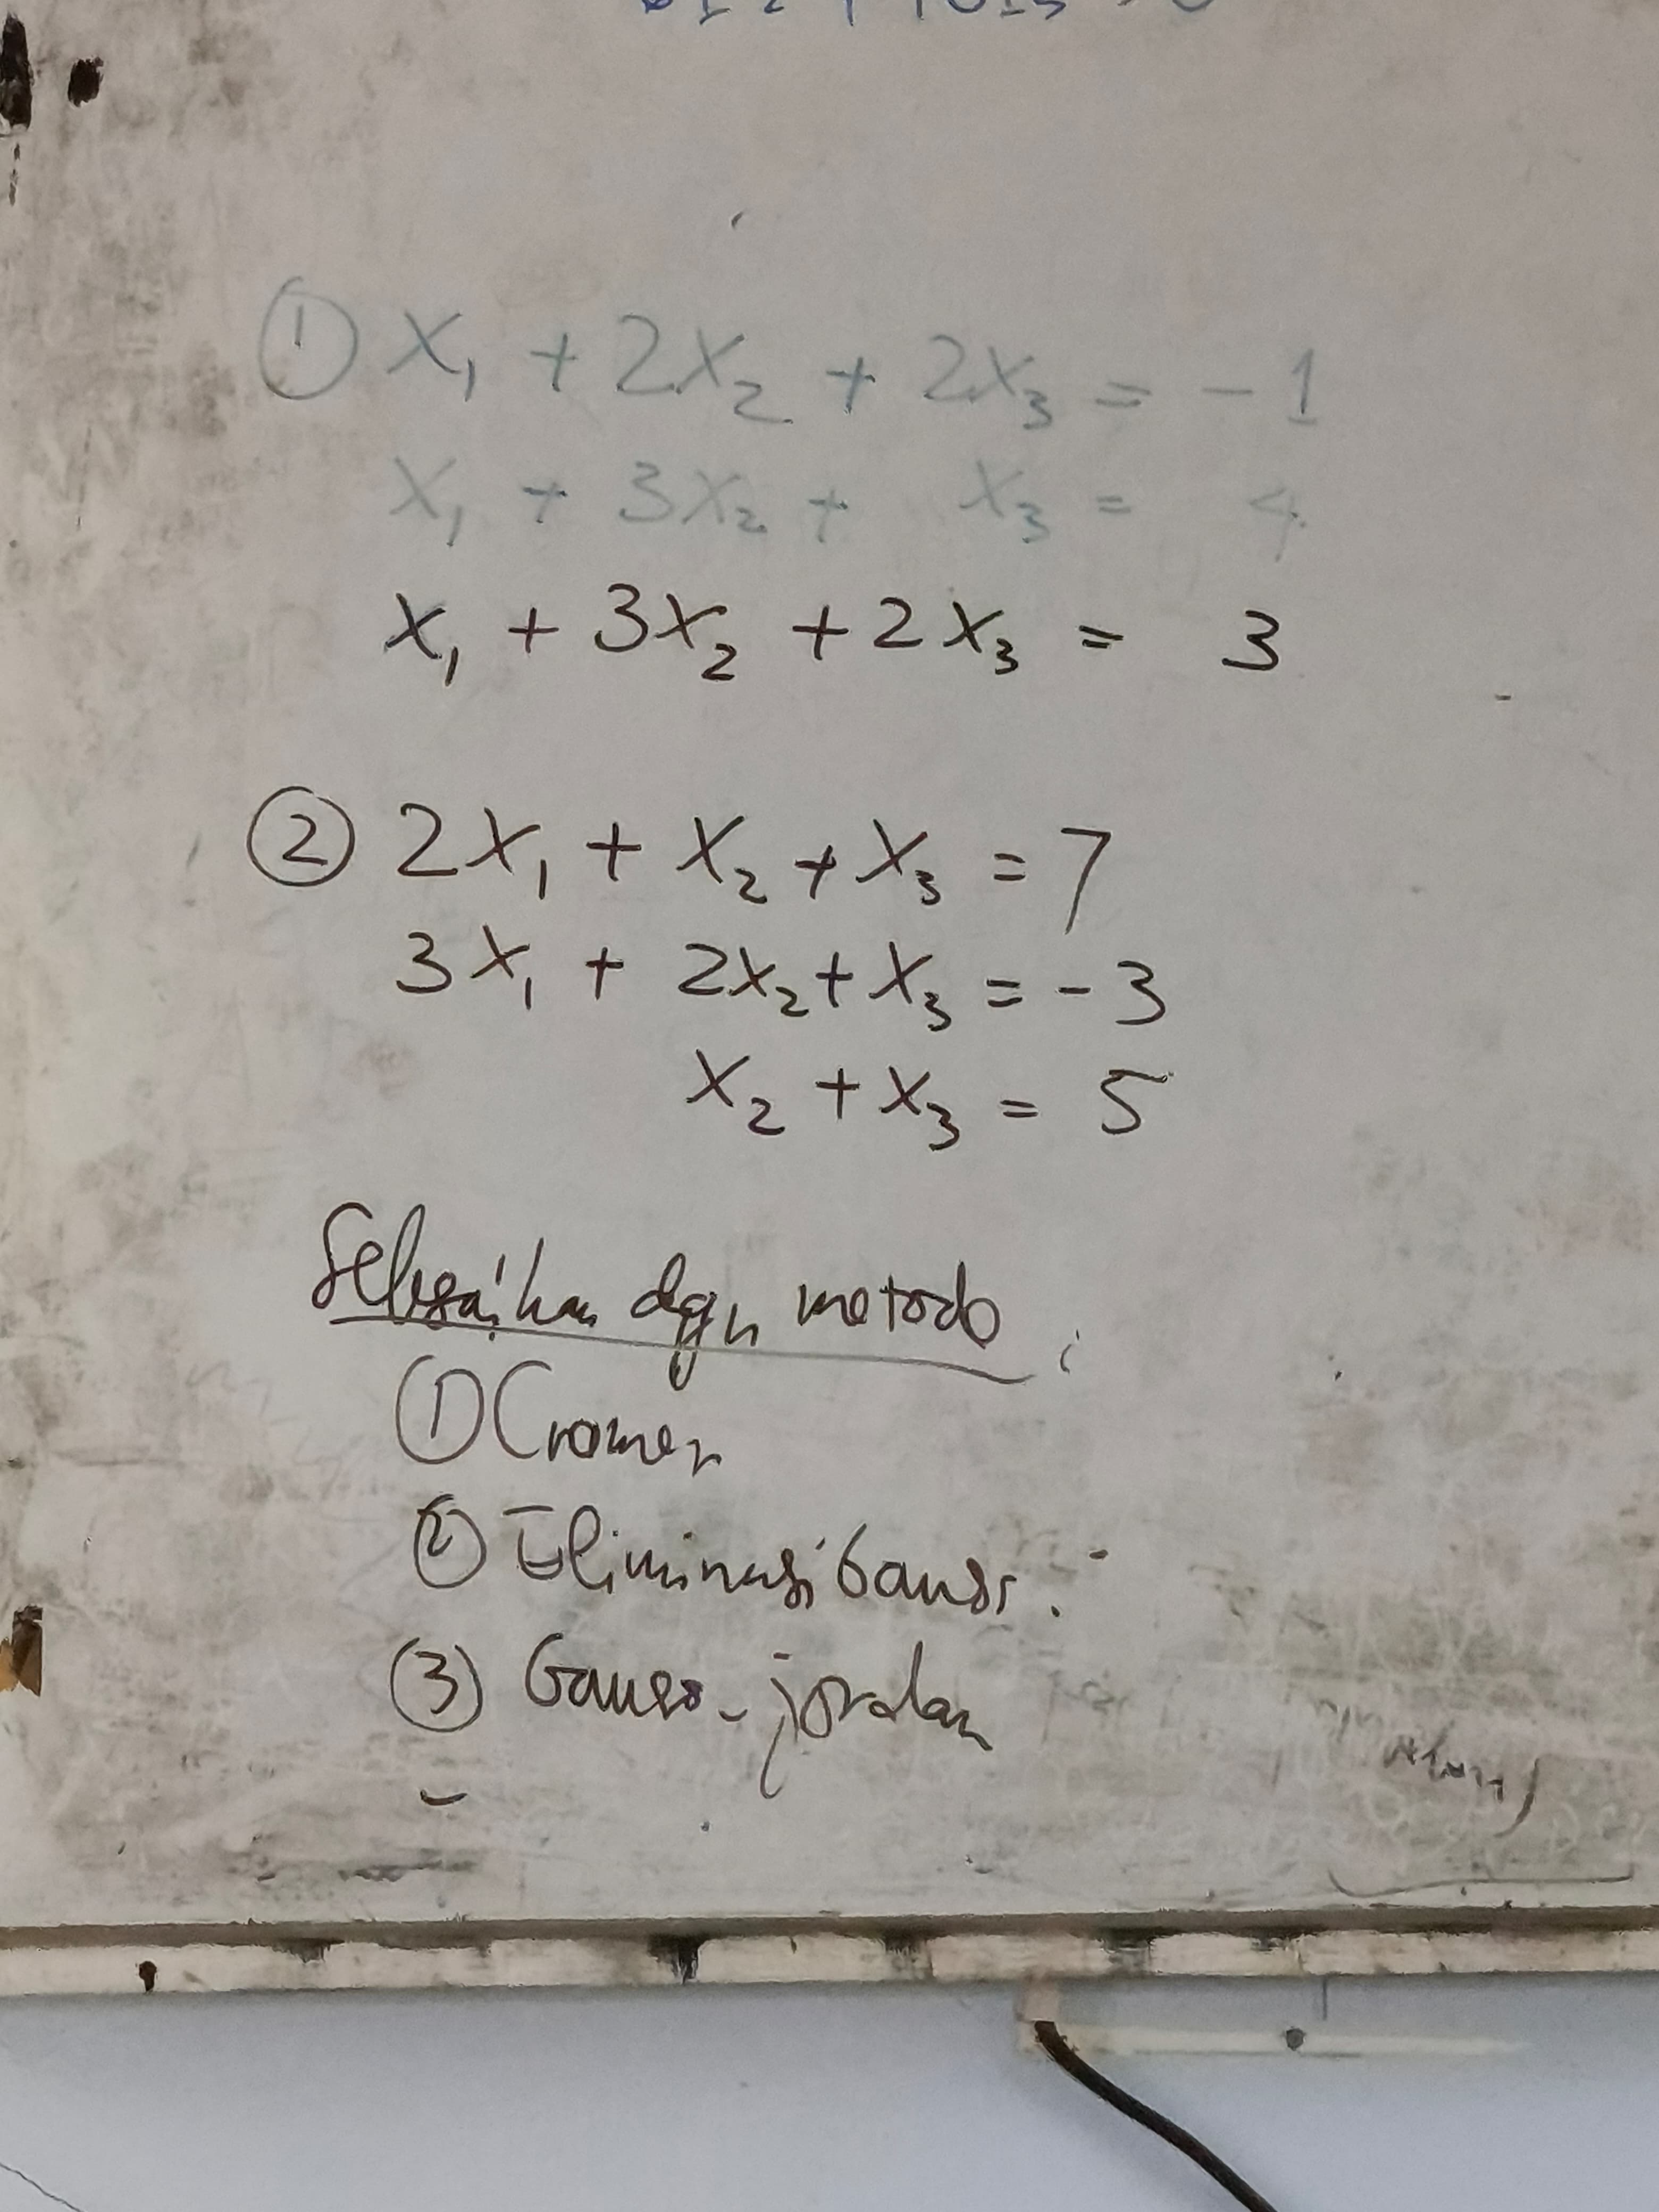 ① x₁ + 2x₂ + 2x₃ = -1
x₁ + 3x₂ + x₃ = 4
x₁ + 3x₂ + 2x₃ = 3
② 2x₁ + x₂ + x₃ = 7
3x₁ + 2x₂ + x₃ = -3
x₂ + x₃ = 5
Selesaikan dgn metode :
① Cramer
② Eliminasi Gauss.
③ Gauss-jordan